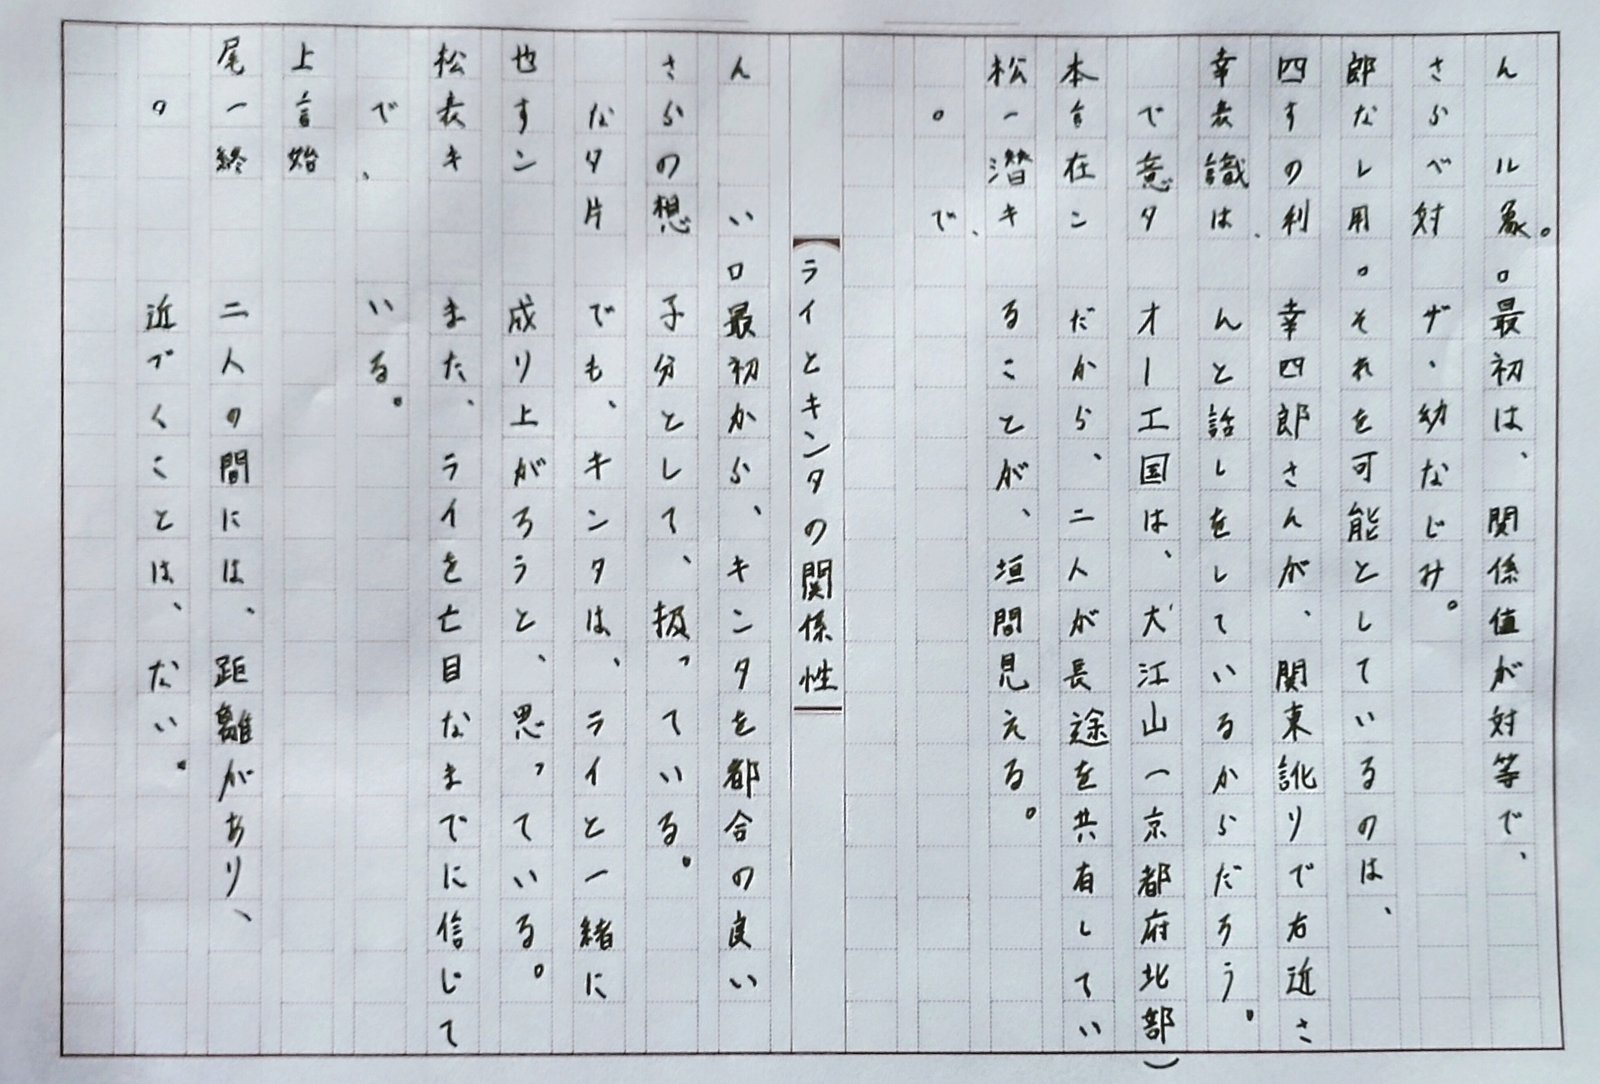 松本幸四郎さん
。一言で表すなら
潜在意識のレベル
で、キンタは、利用対象。
。最初は、関係値が対等で、
ザ・幼なじみ。
それを可能としているのは、
幸四郎さんが、関東訛りで右近さ
んと話しをしているからだろう。
オーエ国は、大江山一京都府北部)
だから、二人が長途を共有してい
ることが、垣間見える。
【ライとキンタの関係性】
尾上松也さん
。一言で表すなら
終始、キンタの
片想い
。最初から、キンタを都合の良い
子分として、扱っている。
でも、キンタは、ライと一緒に
成り上がろうと、思っている。
また、ライを亡目なまでに信じて
いる。
二人の間には、距離があり、
近づくことは、ない。